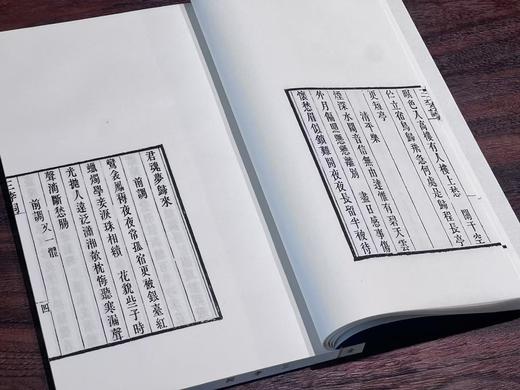 三李詞
暝色入高樓有人樓上愁　闌干空
佇立宿鳥歸飛急何處是歸程長亭
更短亭
清平樂
煙深水闊音信無由達惟有碧天雲
外月偏照懸懸離別　盡日感事傷
懷愁眉似鎖難開夜夜長留半被待
君魂夢歸來
前調
鸞衾鳳褥夜夜常孤宿更被銀臺紅
蠟燭學妾淚珠相續　花貌些子時
光拋人遠泛瀟湘欹枕悔聽寒漏聲
聲滴斷愁腸
前調　又一體
三李詞　四